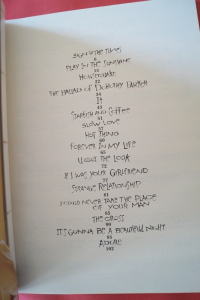 SIGN O THE TIMES
6
PLAY IN THE SUNSHINE
HOUSEQUAKE
THE BALLAD OF DOROTHY PARKER
34
IT
STARFISH AND COFFEE
SLOW LOVE
HOT THING
60
FOREVER IN MY LIFE
U GOT THE LOOK
72
IF I WAS YOUR GIRLFRIEND
77
STRANGE RELATIONSHIP
81
I COULD NEVER TAKE THE PLACE
OF YOUR MAN
THE CROSS
90
IT'S GUNNA BE A BEAUTIFUL NIGHT
95
ADORE
102